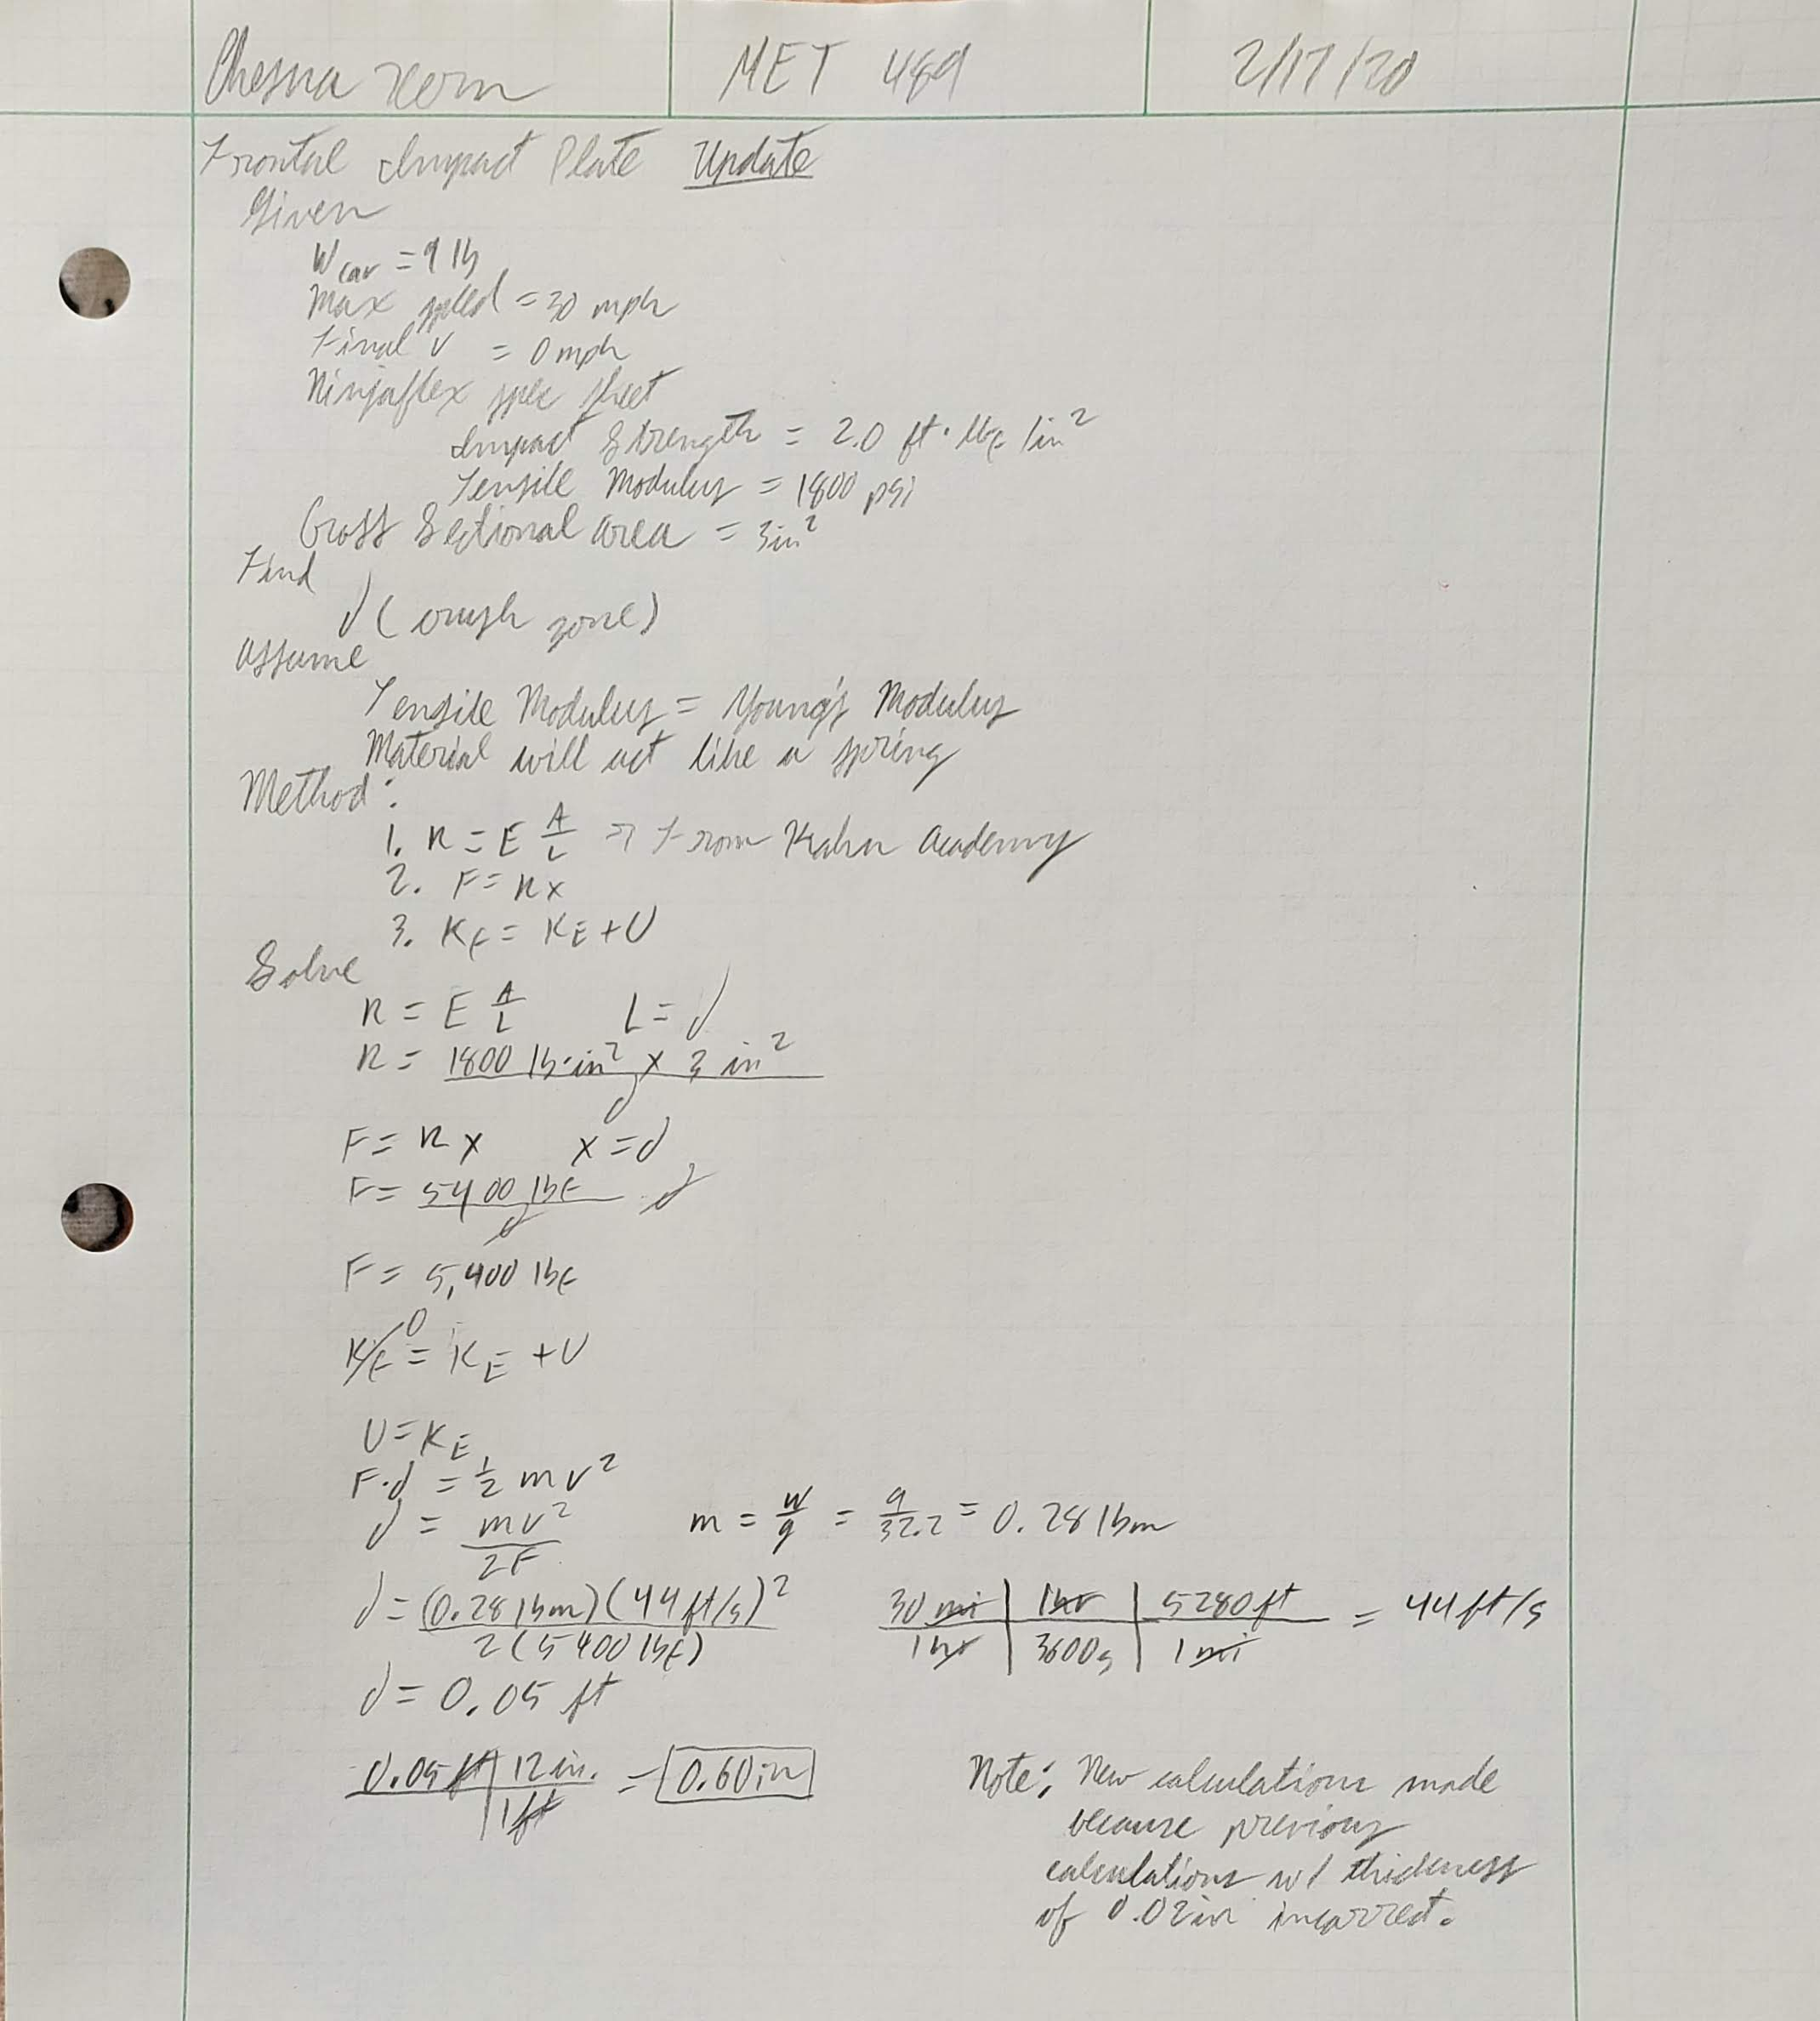 MET 489
2/17/20
Frontal Impact Plate Update
Given
W car = 9 lb
Max speed = 30 mph
Final v = 0 mph
Ninjaflex spec sheet
Impact Strength = 2.0 ft·lbf/in²
Tensile Modulus = 1800 psi
Cross Sectional area = 3in²
Find
d (crush zone)
Assume
Tensile Modulus = Young's Modulus
Material will act like a spring
Method:
1. K = E A/L => From Kahn Academy
2. F = Kx
3. KE = KE + U
Solve
K = E A/L L = d
K = 1800 lb·in² x 3 in² / d
F = K x x = d
F = 5400 lbf / d · d
F = 5,400 lbf
KE 0 = KE + U
U = KE
F·d = 1/2 mv²
d = mv² / 2F m = W/g = 9/32.2 = 0.28 lbm
d = (0.28 lbm)(44 ft/s)² / 2(5400 lbf) 30 mi/1hr | 1hr/3600s | 5280ft/1mi = 44 ft/s
d = 0.05 ft
0.05 ft | 12 in. / 1ft = 0.60in
Note: New calculations made
because previous
calculations w/ thickness
of 0.02in incorrect.